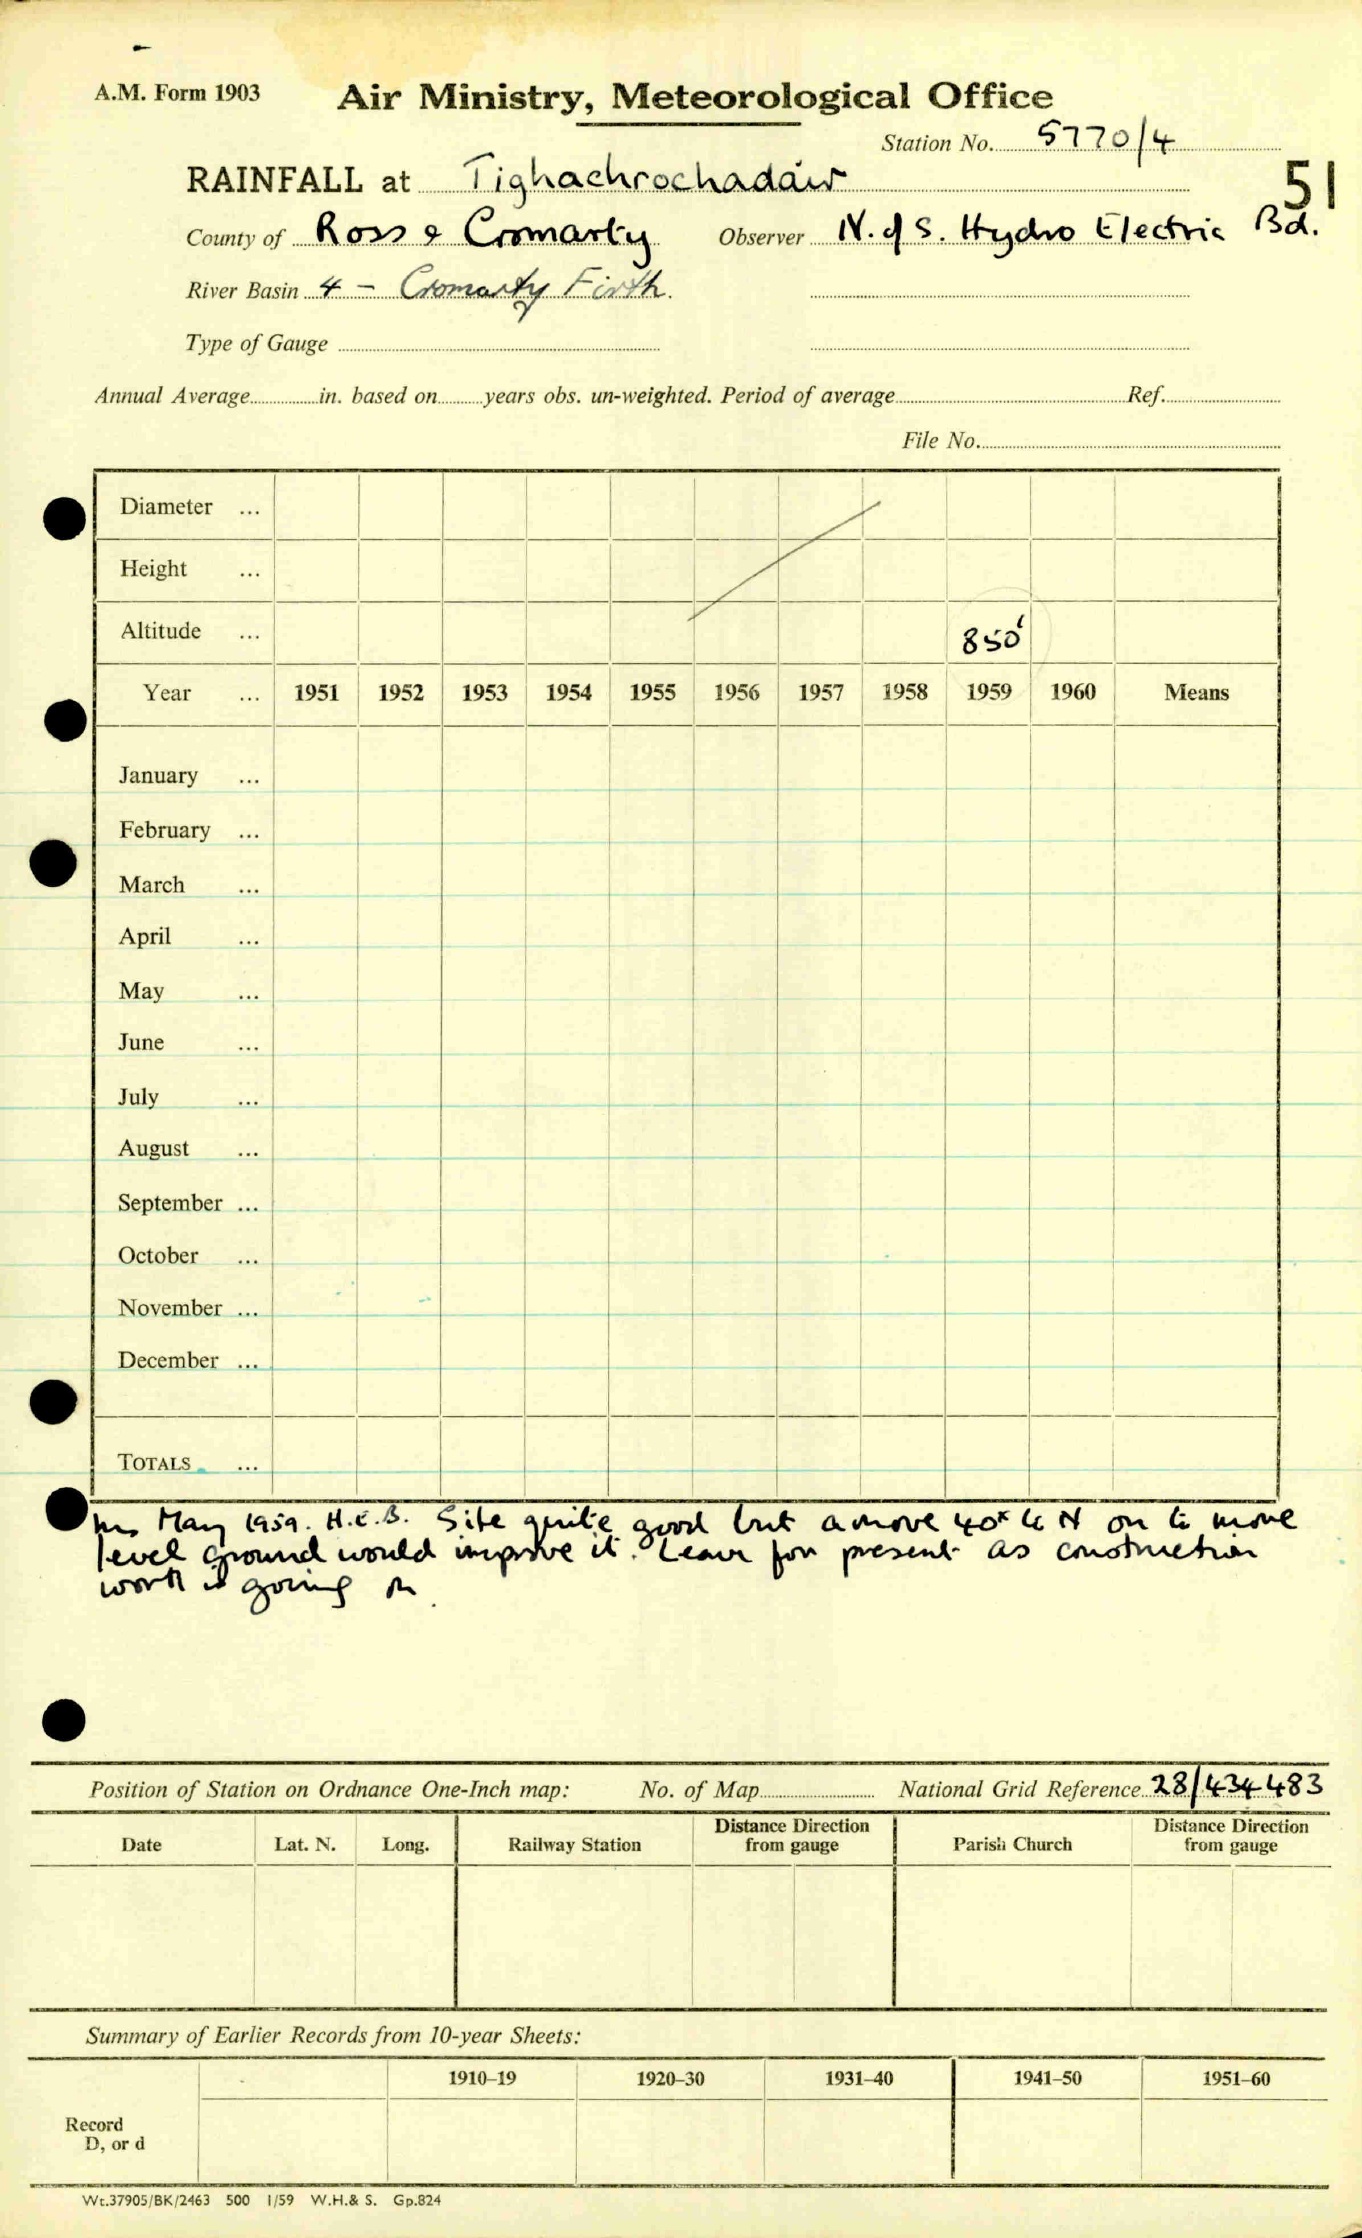 A.M. Form 1903
Air Ministry, Meteorological Office
Station No. 5770/4
RAINFALL at Tighachrochadair
51
County of Ross & Cromarty Observer N. of S. Hydro Electric Bd.
River Basin 4 - Cromarty Firth.
Type of Gauge
Annual Average in. based on years obs. un-weighted. Period of average Ref.
File No.
Diameter ...
Height ...
Altitude ... 850'
Year ... 1951 1952 1953 1954 1955 1956 1957 1958 1959 1960 Means
January ...
February ...
March ...
April ...
May ...
June ...
July ...
August ...
September ...
October ...
November ...
December ...
TOTALS ...
Ins May 1959. H.E.B. Site quite good but a move 40x to N on to more
level ground would improve it. Leave for present as construction
work is going on.
Position of Station on Ordnance One-Inch map: No. of Map National Grid Reference 28/434483
Date Lat. N. Long. Railway Station Distance Direction from gauge Parish Church Distance Direction from gauge
Summary of Earlier Records from 10-year Sheets:
1910–19 1920–30 1931–40 1941–50 1951–60
Record
D, or d
Wt.37905/BK/2463 500 1/59 W.H.& S. Gp.824